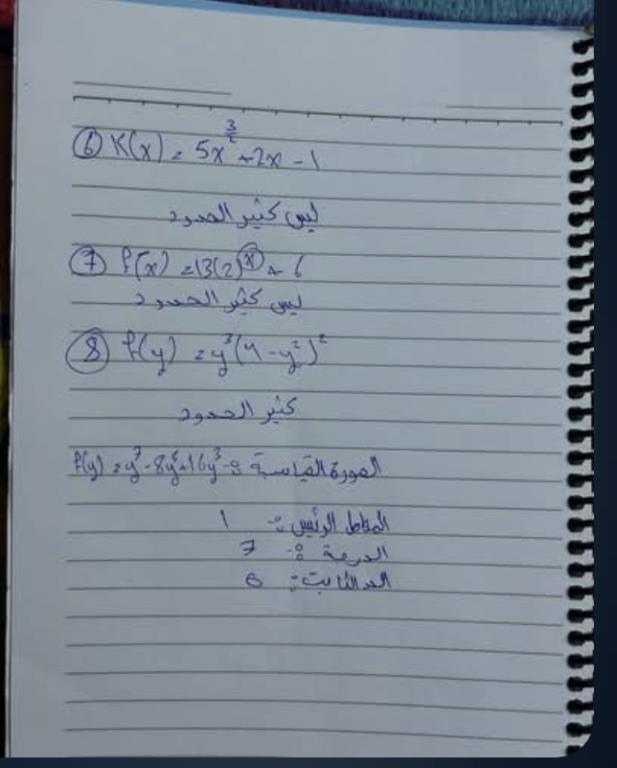 ⑥ K(x) = 5x^(3/2) + 2x - 1
ليس كثير الحدود
⑦ f(x) = 13(2)^x + 6
ليس كثير الحدود
⑧ f(y) = y³(4 - y²)²
كثير الحدود
الصورة القياسية :- f(y) = y⁷ - 8y⁵ + 16y³
المعامل الرئيس :- 1
الدرجة :- 7
الحد الثابت :- 0